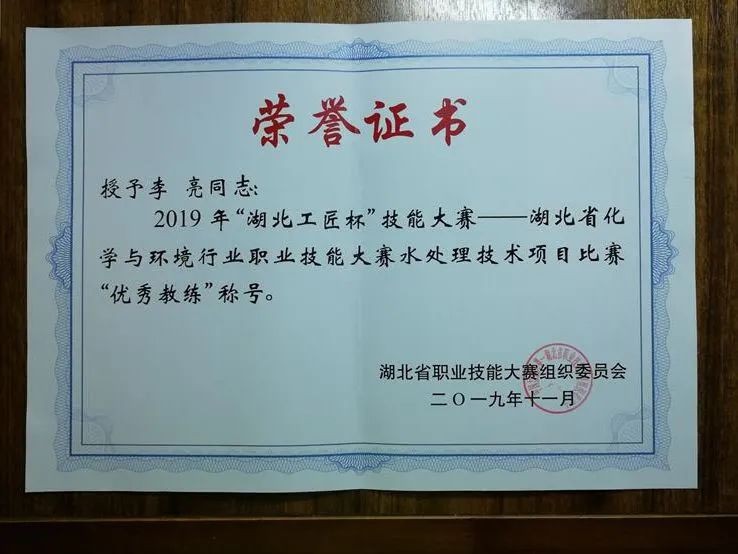 荣誉证书
授予李 亮同志:
2019 年“湖北工匠杯”技能大赛——湖北省化
学与环境行业职业技能大赛水处理技术项目比赛
“优秀教练”称号。
湖北省职业技能大赛组织委员会
二〇一九年十一月